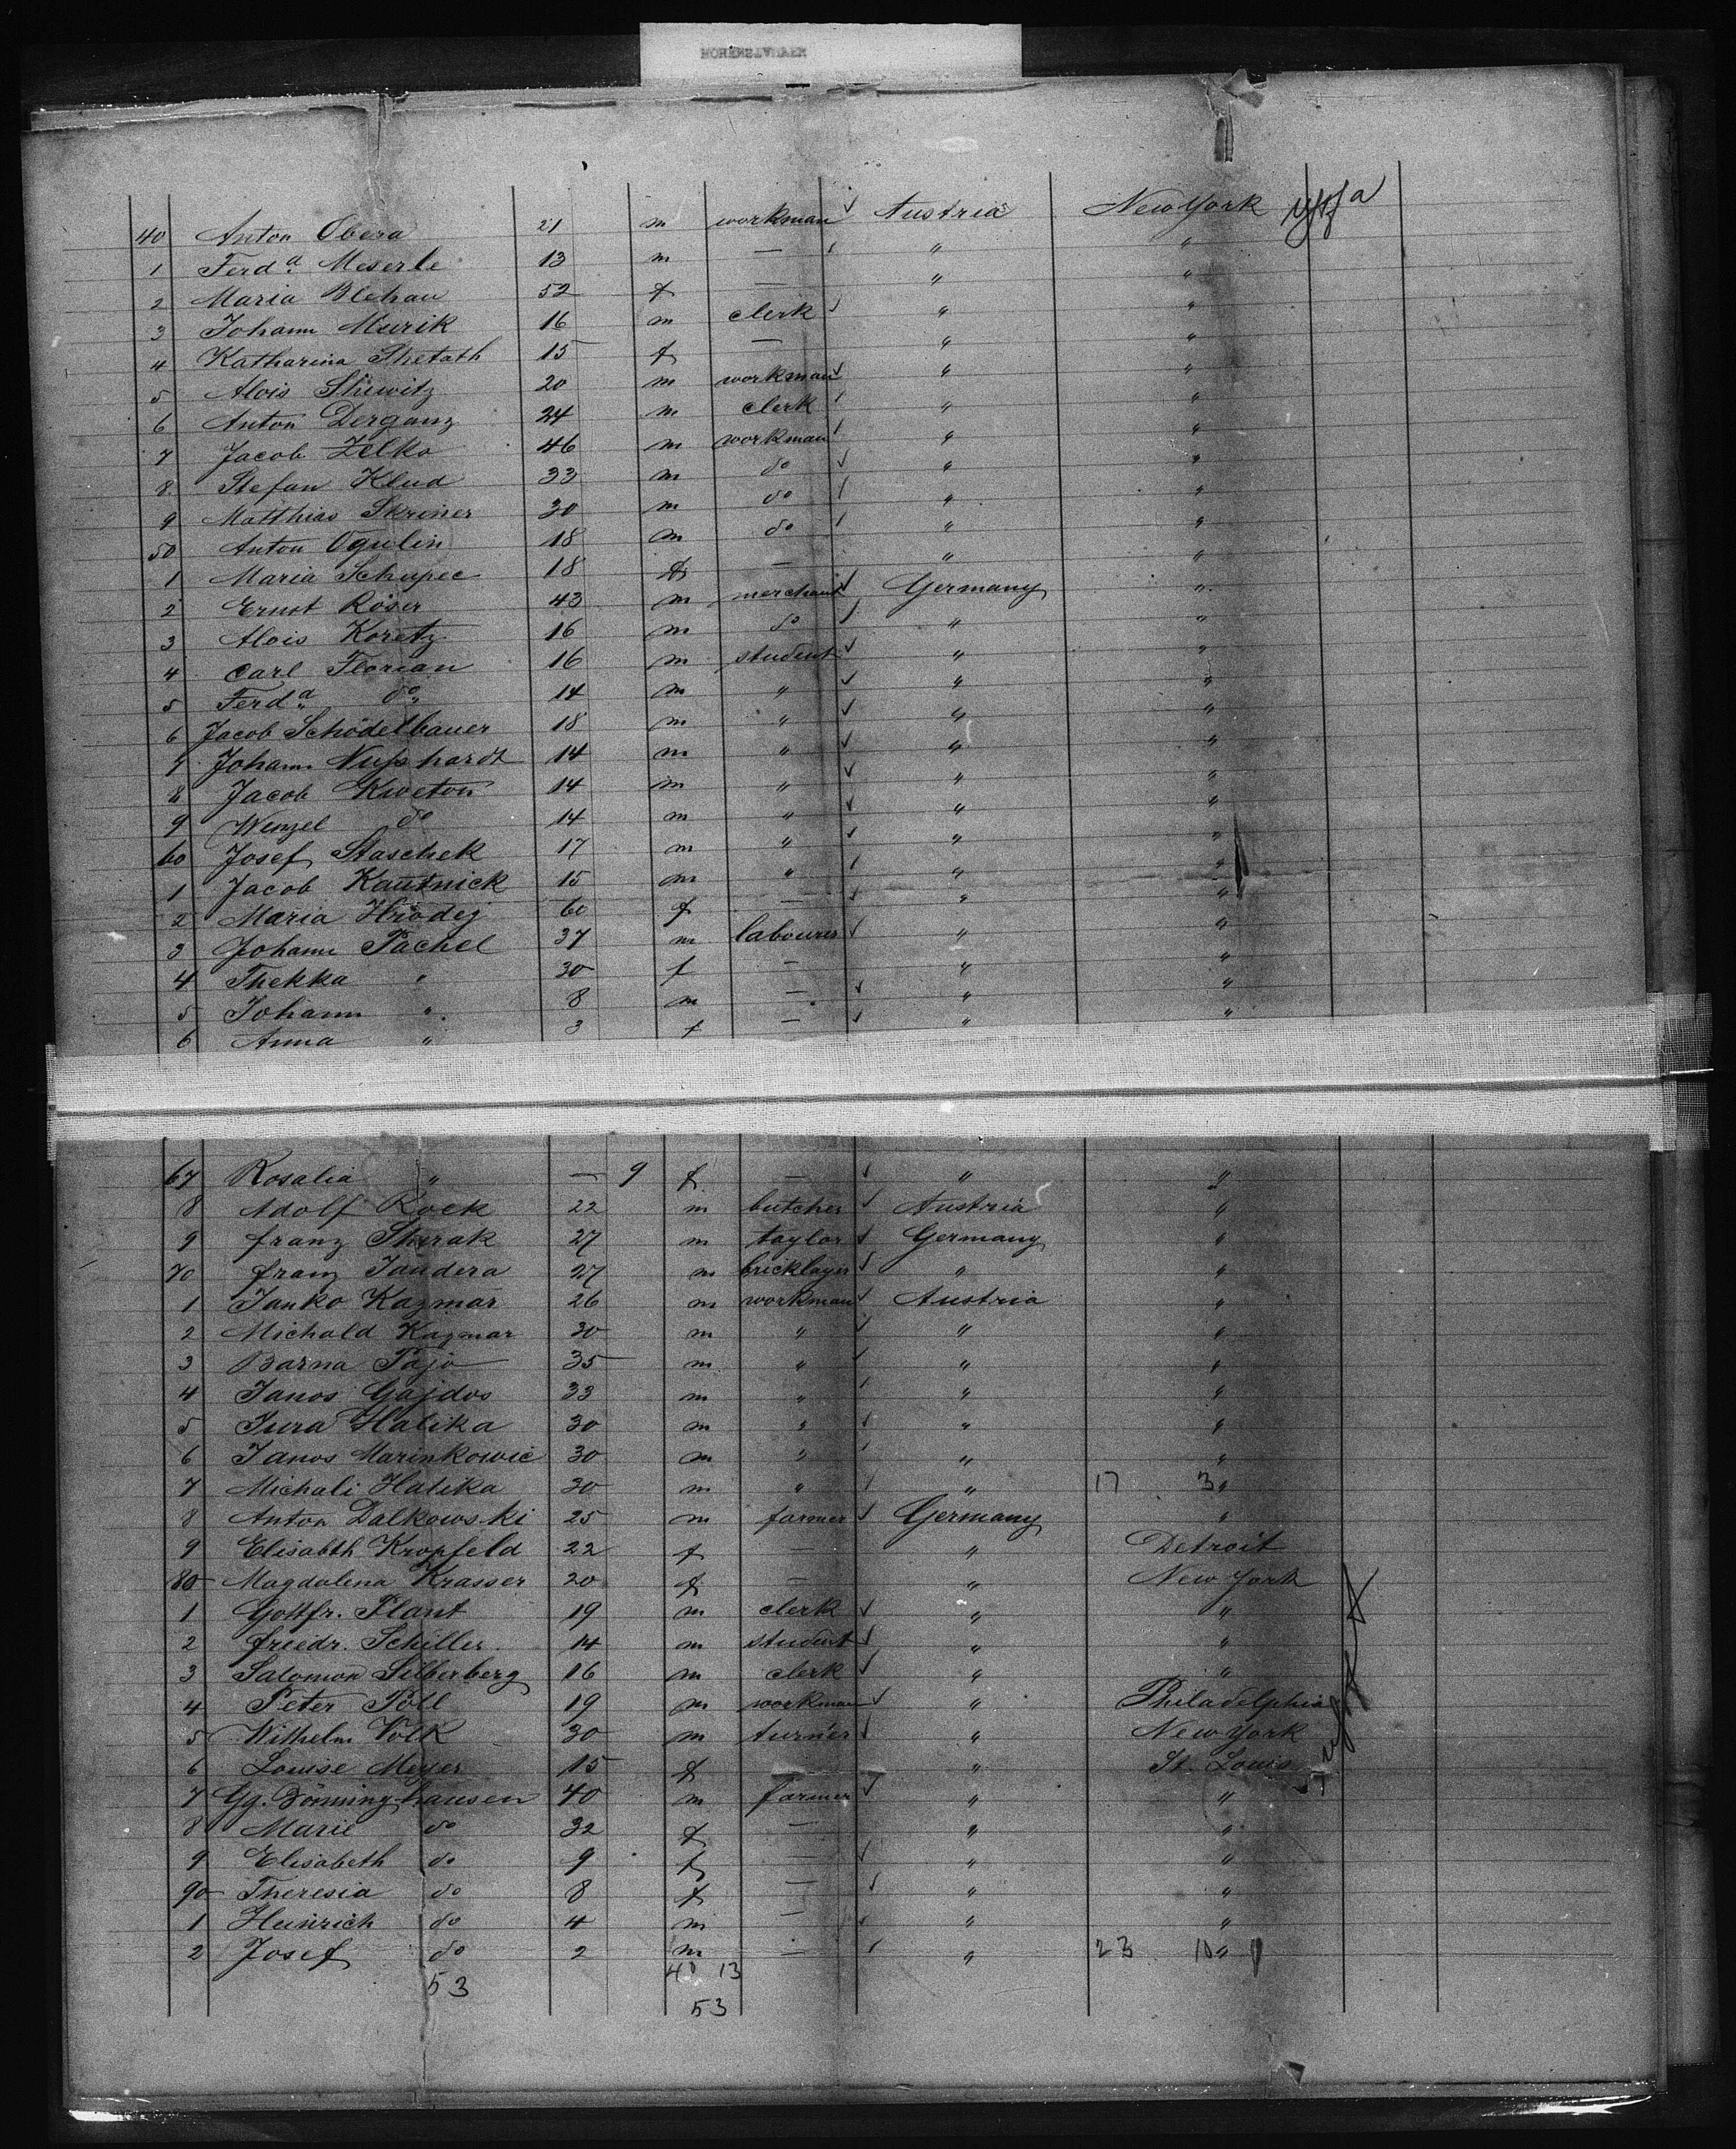 40 Anton Obera 21 m workman ✓ Austria New York
1 Ferdᵃ Meserle 13 m — ✓ " "
2 Maria Blehan 52 f — " "
3 Johann Murik 16 m clerk ✓ " "
4 Katharina 15 f — " "
5 Alois 20 m workman ✓ " "
6 Anton Derganz 24 m clerk ✓ " "
7 Jacob Zelko 46 m workman ✓ " "
8 Stefan Klud 33 m do ✓ " "
9 Matthias Skriner 30 m do ✓ " "
50 Anton Ogulin 18 m do ✓ " "
1 Maria Schupec 18 f — " "
2 Ernst Röser 43 m merchant ✓ Germany "
3 Alois Koretz 16 m do ✓ " "
4 Carl Florian 16 m student ✓ " "
5 Ferdᵃ do 14 m " ✓ " "
6 Jacob Schödelbauer 18 m " ✓ " "
7 Johann Nußhardt 14 m " ✓ " "
8 Jacob Kweton 14 m " ✓ " "
9 Wenzel do 14 m " ✓ " "
60 Josef Staschek 17 m " ✓ " "
1 Jacob Kautnick 15 m " ✓ " "
2 Maria Hrodej 60 f — ✓ " "
3 Johann Pachel 37 m labourer ✓ " "
4 Thekka " 30 f — " "
5 Johann " 8 m — ✓ " "
6 Anna " 3 f — ✓ " "
67 Rosalia " — 9 f — ✓ " "
8 Adolf Rock 22 m butcher ✓ Austria "
9 Franz 27 m taylor ✓ Germany "
70 Franz Jandera 27 m bricklayer ✓ " "
1 Janko Kazmar 26 m workman ✓ Austria "
2 Michald Kazmar 30 m " ✓ " "
3 Barna Pajo 35 m " ✓ " "
4 Janos Gajdos 33 m " ✓ " "
5 Jura Halika 30 m " ✓ " "
6 Janos Marinkowic 30 m " ✓ " "
7 Michali Halika 30 m " ✓ " 17 3 "
8 Anton Dalkowski 25 m farmer ✓ Germany "
9 Elisabth Kropfeld 22 f — " Detroit
80 Magdalena Krasser 20 f — " New York
1 Gottfr. Plant 19 m clerk ✓ " "
2 Friedr. Schiller 14 m student ✓ " "
3 Salomon Silberberg 16 m clerk ✓ " "
4 Peter Poll 19 m workman ✓ " Philadelphia
5 Wilhelm Volk 30 m turner ✓ " New York
6 Louise Meyer 15 f — " St. Louis
7 Gg. Dönninghausen 40 m farmer ✓ " "
8 Marie do 32 f — " "
9 Elisabeth do 9 f — ✓ " "
90 Theresia do 8 f — ✓ " "
1 Heinrich do 4 m — ✓ " "
2 Josef do 2 m — ✓ " 23 10 "
53 40 13
53